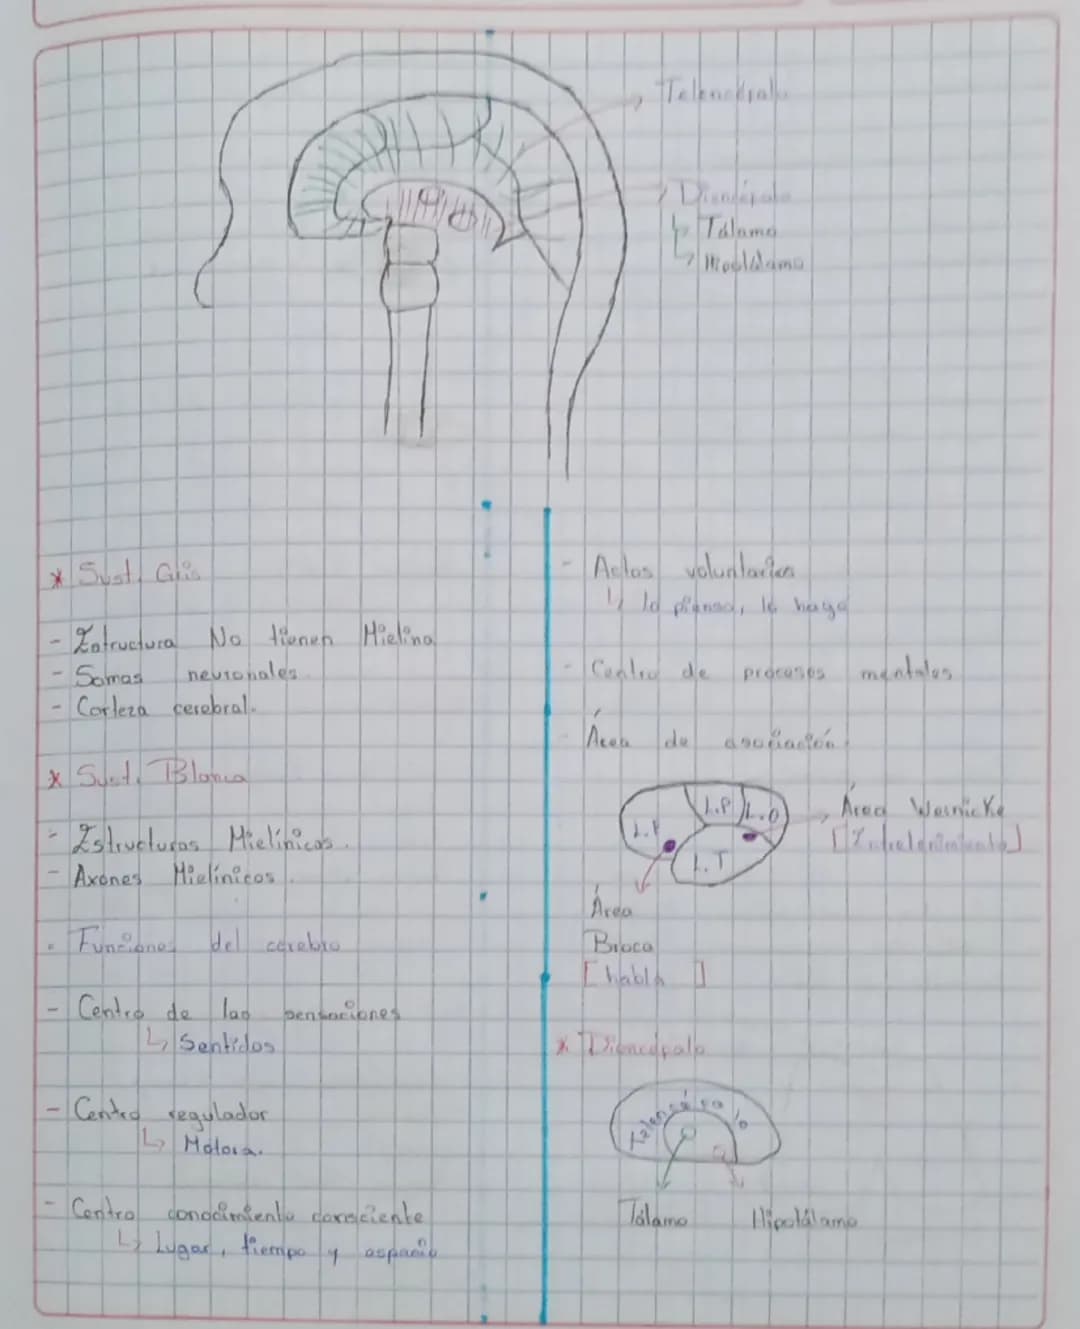 Telencéfalo
Diencéfalo
Tálamo
Hipotálamo
* Sust. Gris
- Estructura No tienen Mielina
- Somas neuronales.
- Corteza cerebral.
* Sust. Blanca
- Estructuras Mielínicas.
- Axones Mielínicos.
Funciones del cerebro
- Centro de las sensaciones
Sentidos
- Centro regulador
Motora.
- Centro conocimiento consciente
Lugar, tiempo y espacio
- Actos voluntarios
lo pienso, lo hago
- Centro de procesos mentales
- Área de asociación.
L.F
L.P
L.O
L.T
Área Wernicke
[Entendimiento]
Área
Broca
[habla]
* Diencéfalo
telencéfalo
Tálamo Hipotálamo